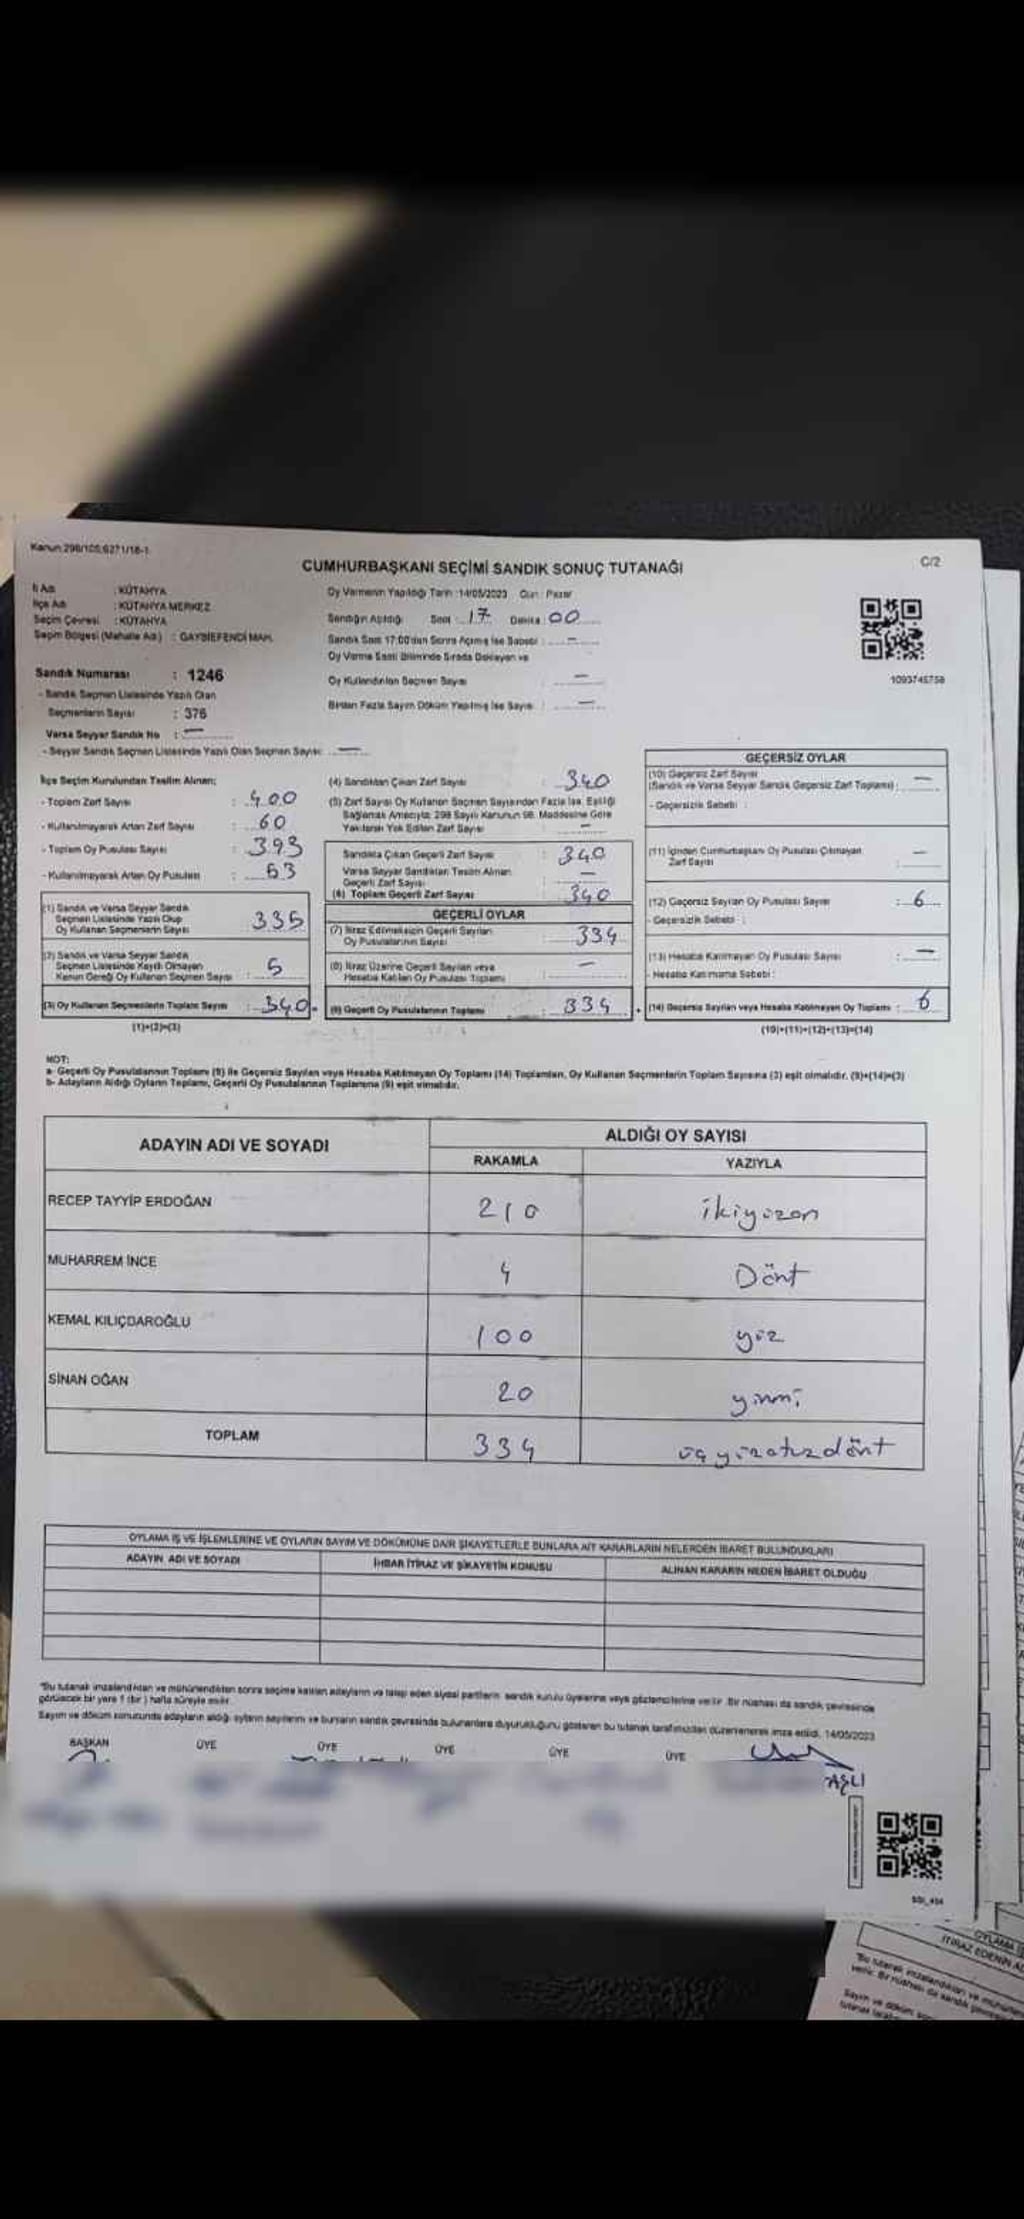 Kanun:298/105,6271/18-1
C/2
CUMHURBAŞKANI SEÇİMİ SANDIK SONUÇ TUTANAĞI
İl Adı : KÜTAHYA
İlçe Adı : KÜTAHYA MERKEZ
Seçim Çevresi : KÜTAHYA
Seçim Bölgesi (Mahalle Adı) : GAYBİEFENDİ MAH.
Oy Vermenin Yapıldığı Tarih :14/05/2023 Gün : Pazar
Sandığın Açıldığı Saat : 17 Dakika : 00
Sandık Saat 17:00'dan Sonra Açılmış İse Sebebi : —
Oy Verme Saati Bitiminde Sırada Bekleyen ve
Oy Kullandırılan Seçmen Sayısı : —
Birden Fazla Sayım Döküm Yapılmış İse Sayısı : —
1093745758
Sandık Numarası : 1246
- Sandık Seçmen Listesinde Yazılı Olan
Seçmenlerin Sayısı : 376
Varsa Seyyar Sandık No : —
- Seyyar Sandık Seçmen Listesinde Yazılı Olan Seçmen Sayısı: —
İlçe Seçim Kurulundan Teslim Alınan;
- Toplam Zarf Sayısı : 400
- Kullanılmayarak Artan Zarf Sayısı : 60
- Toplam Oy Pusulası Sayısı : 393
- Kullanılmayarak Artan Oy Pusulası : 53
(1) Sandık ve Varsa Seyyar Sandık
Seçmen Listesinde Yazılı Olup
Oy Kullanan Seçmenlerin Sayısı : 335
(2) Sandık ve Varsa Seyyar Sandık
Seçmen Listesinde Kayıtlı Olmayan
Kanun Gereği Oy Kullanan Seçmen Sayısı : 5
(3) Oy Kullanan Seçmenlerin Toplam Sayısı : 340
(1)+(2)=(3)
(4) Sandıktan Çıkan Zarf Sayısı : 340
(5) Zarf Sayısı Oy Kullanan Seçmen Sayısından Fazla İse, Eşitliği
Sağlamak Amacıyla; 298 Sayılı Kanunun 98. Maddesine Göre
Yakılarak Yok Edilen Zarf Sayısı : —
Sandıkta Çıkan Geçerli Zarf Sayısı : 340
Varsa Seyyar Sandıktan Teslim Alınan
Geçerli Zarf Sayısı : —
(6) Toplam Geçerli Zarf Sayısı : 340
GEÇERLİ OYLAR
(7) İtiraz Edilmeksizin Geçerli Sayılan
Oy Pusulalarının Sayısı : 334
(8) İtiraz Üzerine Geçerli Sayılan veya
Hesaba Katılan Oy Pusulası Toplamı : —
(9) Geçerli Oy Pusulalarının Toplamı : 334
GEÇERSİZ OYLAR
(10) Geçersiz Zarf Sayısı
(Sandık ve Varsa Seyyar Sandık Geçersiz Zarf Toplamı) : —
- Geçersizlik Sebebi :
(11) İçinden Cumhurbaşkanı Oy Pusulası Çıkmayan
Zarf Sayısı : —
(12) Geçersiz Sayılan Oy Pusulası Sayısı : 6
- Geçersizlik Sebebi :
(13) Hesaba Katılmayan Oy Pusulası Sayısı : —
- Hesaba Katılmama Sebebi :
(14) Geçersiz Sayılan veya Hesaba Katılmayan Oy Toplamı : 6
(10)+(11)+(12)+(13)=(14)
NOT:
a- Geçerli Oy Pusulalarının Toplamı (9) ile Geçersiz Sayılan veya Hesaba Katılmayan Oy Toplamı (14) Toplamları, Oy Kullanan Seçmenlerin Toplam Sayısına (3) eşit olmalıdır. (9)+(14)=(3)
b- Adayların Aldığı Oyların Toplamı, Geçerli Oy Pusulalarının Toplamına (9) eşit olmalıdır.
ADAYIN ADI VE SOYADI ALDIĞI OY SAYISI
RAKAMLA YAZIYLA
RECEP TAYYİP ERDOĞAN 210 ikiyüzon
MUHARREM İNCE 4 Dört
KEMAL KILIÇDAROĞLU 100 yüz
SİNAN OĞAN 20 yirmi
TOPLAM 334 üçyüzotuzdört
OYLAMA İŞ VE İŞLEMLERİNE VE OYLARIN SAYIM VE DÖKÜMÜNE DAİR ŞİKAYETLERLE BUNLARA AİT KARARLARIN NELERDEN İBARET BULUNDUKLARI
ADAYIN ADI VE SOYADI İHBAR İTİRAZ VE ŞİKAYETİN KONUSU ALINAN KARARIN NEDEN İBARET OLDUĞU
"Bu tutanak imzalandıktan ve mühürlendikten sonra seçime katılan adayların ve talep eden siyasi partilerin sandık kurulu üyelerine veya gözlemcilerine verilir. Bir nüshası da sandık çevresinde
görülecek bir yere 1 (bir) hafta süreyle asılır.
Sayım ve döküm sonucunda adayların aldığı oyların sayılarını ve bunların sandık çevresinde bulunanlara duyurulduğunu gösteren bu tutanak tarafımızdan düzenlenerek imza edildi. 14/05/2023
BAŞKAN ÜYE ÜYE ÜYE ÜYE ÜYE
AŞLI
OYLAMA İ
İTİRAZ EDENİN AD
"Bu tutanak imzalandıktan ve mühürlen
verilir. Bir nüshası da sandık çevresin
Sayım ve döküm
tutanak taraf